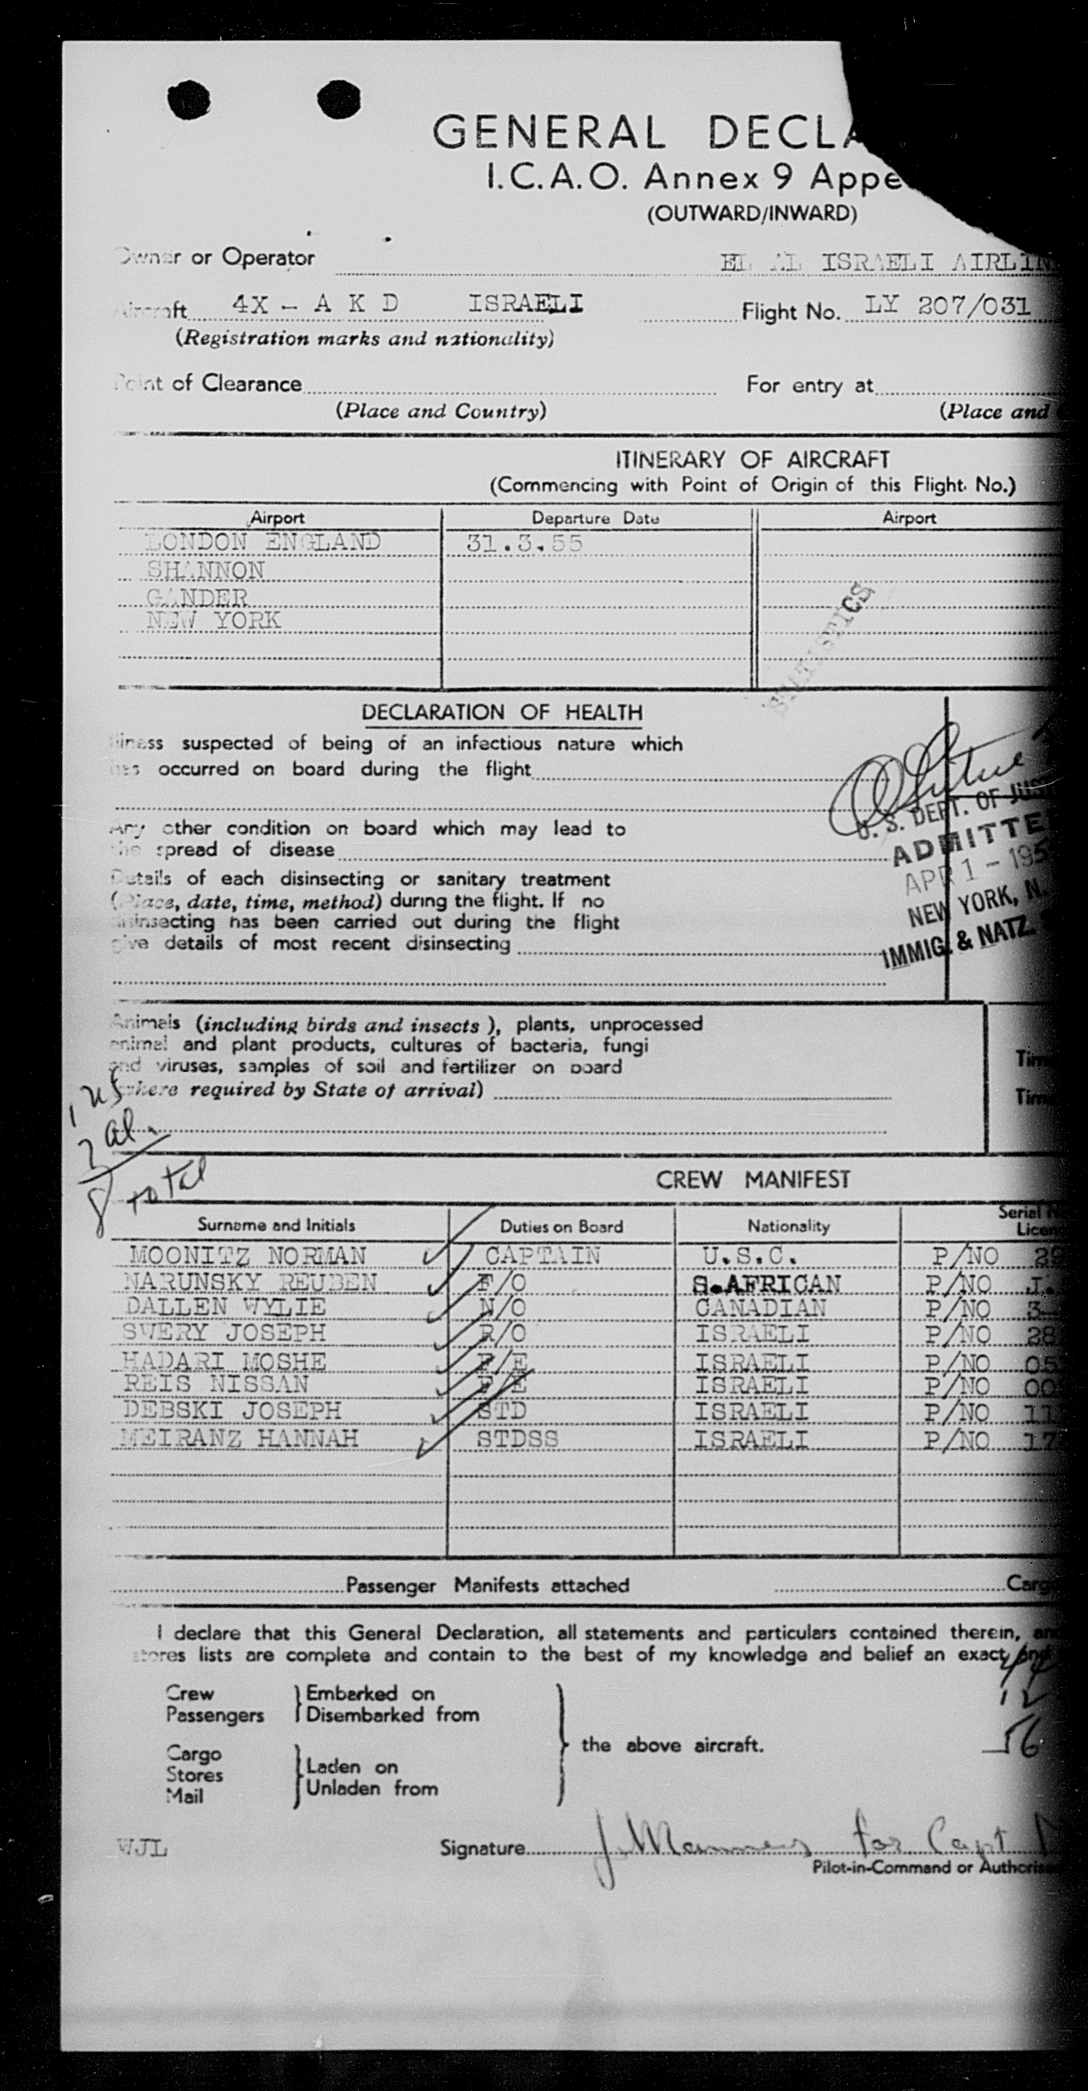 GENERAL DECLA
I.C.A.O. Annex 9 Appe
(OUTWARD/INWARD)
Owner or Operator EL AL ISRAELI AIRLIN
Aircraft 4X - A K D ISRAELI Flight No. LY 207/031
(Registration marks and nationality)
Point of Clearance For entry at
(Place and Country) (Place and
ITINERARY OF AIRCRAFT
(Commencing with Point of Origin of this Flight No.)
Airport Departure Date Airport
LONDON ENGLAND 31.3.55
SHANNON
GANDER
NEW YORK
STATISTICS
DECLARATION OF HEALTH
illness suspected of being of an infectious nature which
has occurred on board during the flight
Any other condition on board which may lead to
the spread of disease
Details of each disinsecting or sanitary treatment
(Place, date, time, method) during the flight. If no
disinsecting has been carried out during the flight
give details of most recent disinsecting
U. S. DEPT. OF JUST
ADMITTE
APR 1 - 195
NEW YORK, N.
IMMIG. & NATZ.
Animals (including birds and insects), plants, unprocessed
animal and plant products, cultures of bacteria, fungi
and viruses, samples of soil and fertilizer on board
(where required by State of arrival)
Tim
Tim
1 us
7 al.
8 total
CREW MANIFEST
Surname and Initials Duties on Board Nationality Serial Licen
MOONITZ NORMAN CAPTAIN U.S.C. P/NO 29
NARUNSKY REUBEN F/O S.AFRICAN P/NO J.
DALLEN WYLIE N/O CANADIAN P/NO 3
SWERY JOSEPH R/O ISRAELI P/NO 28
HADARI MOSHE F/E ISRAELI P/NO 05
REIS NISSAN F/E ISRAELI P/NO 00
DEBSKI JOSEPH STD ISRAELI P/NO 11
MEIRANZ HANNAH STDSS ISRAELI P/NO 17
Passenger Manifests attached Carg
I declare that this General Declaration, all statements and particulars contained therein, an
stores lists are complete and contain to the best of my knowledge and belief an exact and
Crew Embarked on
Passengers Disembarked from
the above aircraft.
Cargo
Stores Laden on
Mail Unladen from
12
56
WJL Signature J. Manners for Capt
Pilot-in-Command or Authoris